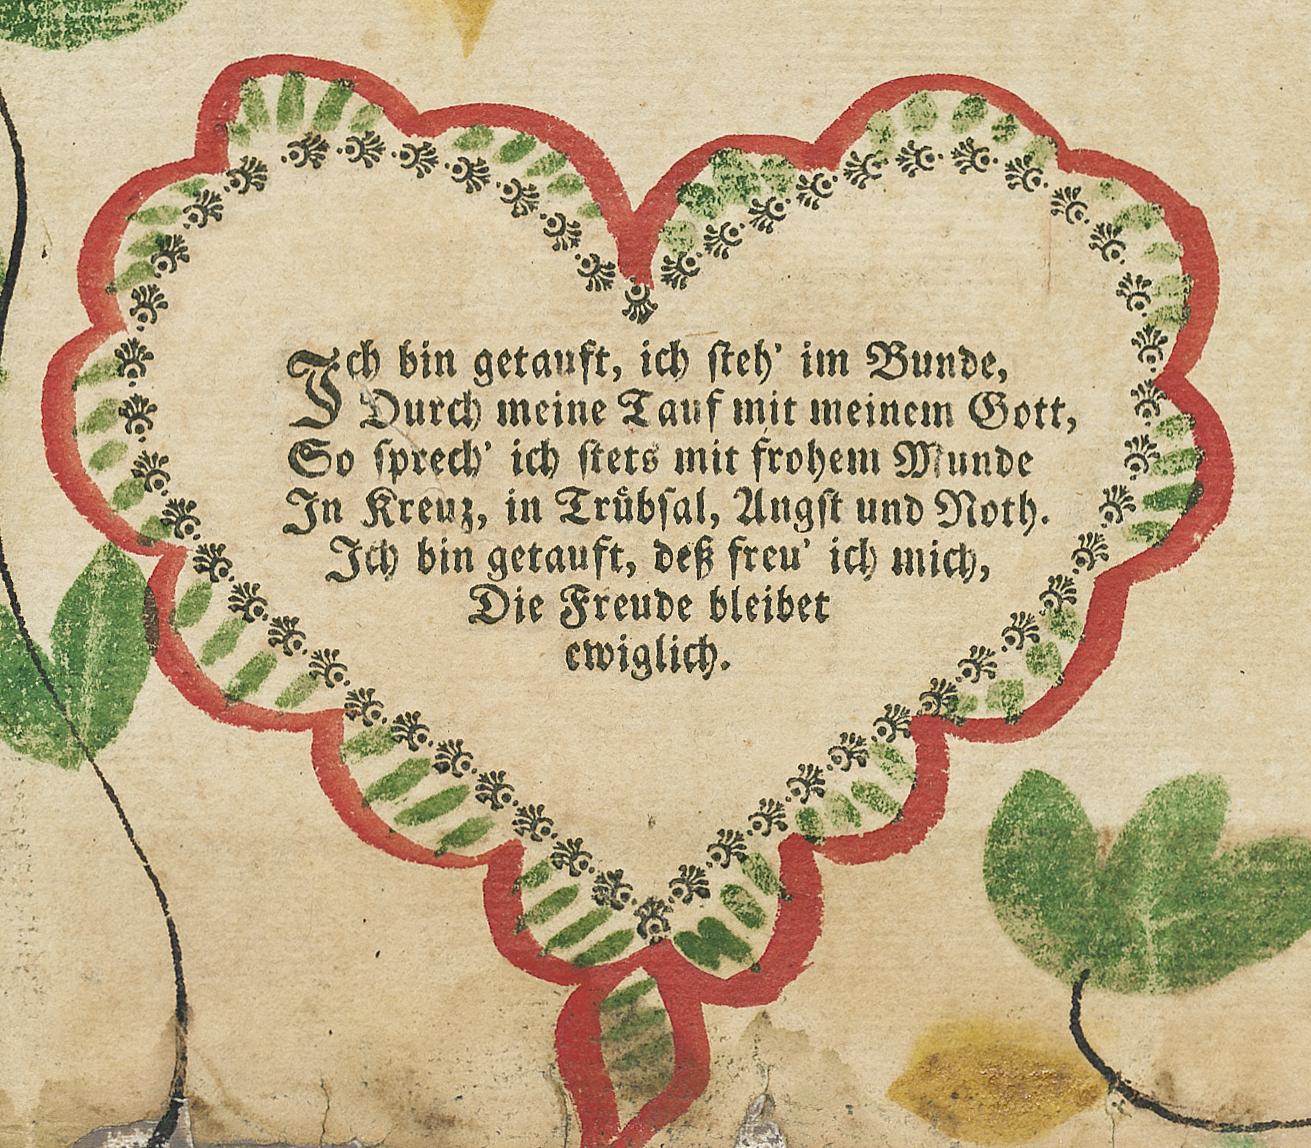 Ich bin getauft, ich steh' im Bunde,
Durch meine Tauf mit meinem Gott,
So sprech' ich stets mit frohem Munde
In Kreuz, in Trübsal, Angst und Noth.
Ich bin getauft, deß freu' ich mich,
Die Freude bleibet
ewiglich.